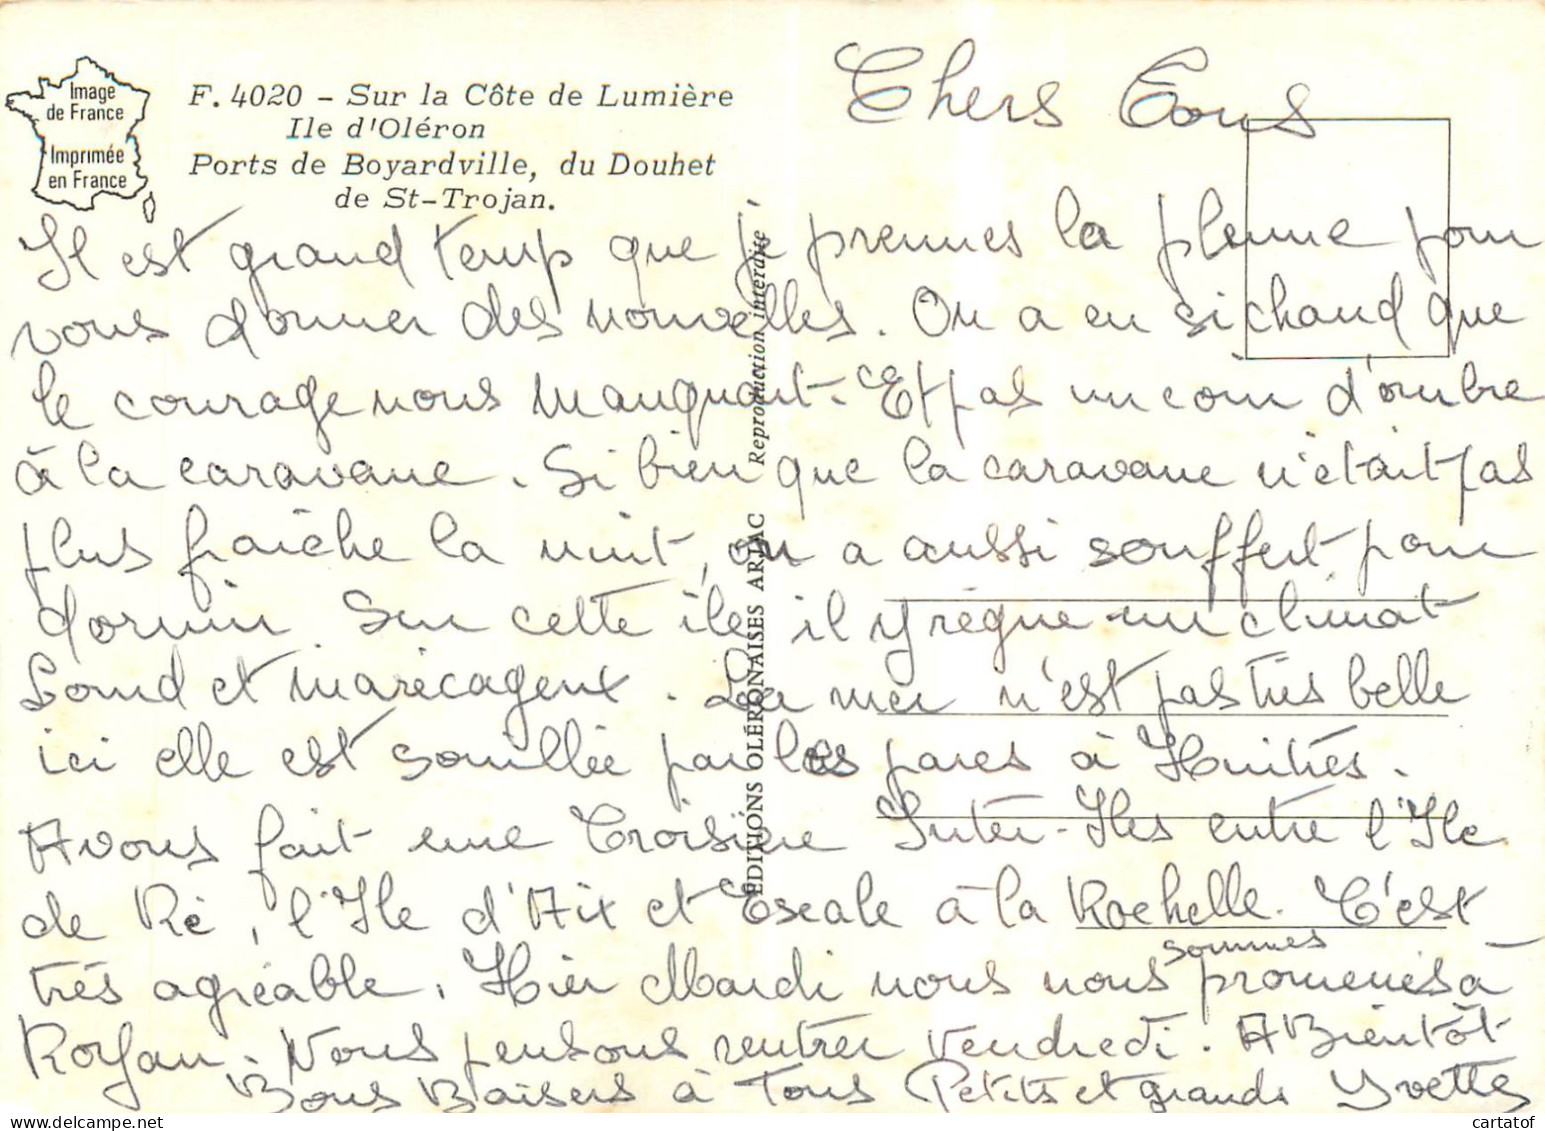 Image
de France
Imprimée
en France
F. 4020 - Sur la Côte de Lumière
Ile d'Oléron
Ports de Boyardville, du Douhet
de St-Trojan.
Chers Tous
Il est grand temp que je prennes la plume pour
vous donner des nouvelles. On a eu si chaud que
le courage nous manquait. Et pas un coin d'ombre
à la caravane. Si bien que la caravane n'était pas
plus fraîche la nuit, on a aussi souffert pour
dormir. Sur cette île, il y règne un climat
Lourd et marécageux. La mer n'est pas très belle
ici elle est souillée par les parcs à Huitres.
Avons fait une Croisière Inter-Iles entre l'Ile
de Ré, l'Ile d'Aix et Escale à la Rochelle. C'est
très agréable. Hier Mardi nous nous sommes promenés à
Royan. Nous pensons rentrer Vendredi. A Bientôt
Bons Baisers à Tous Petits et grands Yvette
EDITIONS OLÉRONAISES ARJAC Reproduction interdite
cartatof